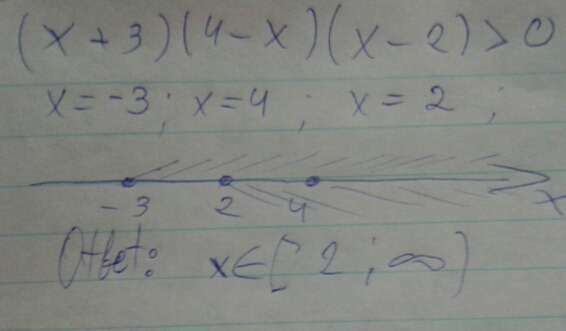 (x+3)(4-x)(x-2)>0
x=-3; x=4; x=2;
-3 2 4 x
Ответ: x∈[2;∞)